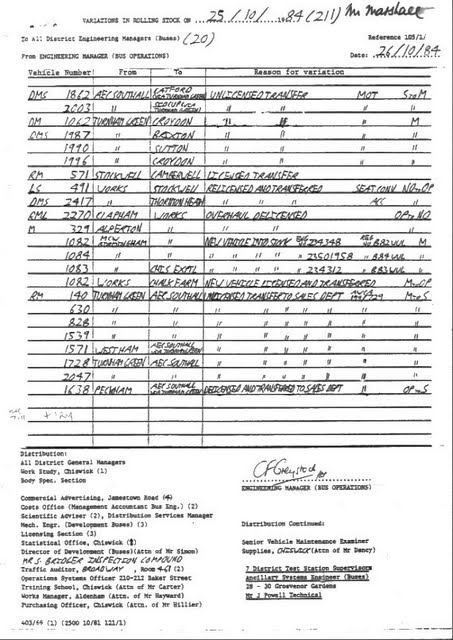 VARIATIONS IN ROLLING STOCK ON 25/10/1984 (211) Mr Marshall
To All District Engineering Managers (Buses) (20) Reference 103/1/
From ENGINEERING MANAGER (BUS OPERATIONS) Date: 26/10/84
Vehicle Number From To Reason for variation
DMS 1862 AEC SOUTHALL CATFORD VIA TURNHAM GREEN UNLICENSED TRANSFER MOT S to M
2003 " " "
DM 1062 TURNHAM GREEN CROYDON " " M
DMS 1987 " BRIXTON " "
1990 " SUTTON " "
1996 " CROYDON " "
RM 571 STOCKWELL CAMBERWELL LICENSED TRANSFER
LS 491 WORKS STOCKWELL RELICENSED AND TRANSFERRED SEAT CONV. NO to OP
DMS 2417 " THORNTON HEATH " ACC "
RML 2270 CLAPHAM WORKS OVERHAUL DELICENSED OP to NO
M 329 ALPERTON " " "
1082 MCW " NEW VEHICLE INTO STOCK 234348 B82WUL M
1084 " " " " " " 23501958 " B84WUL "
1083 " CHIS EXPTL " " " " 234312 " B83WUL "
1082 WORKS CHALK FARM NEW VEHICLE LICENSED AND TRANSFERRED M to OP
RM 140 TURNHAM GREEN AEC SOUTHALL UNLICENSED TRANSFER TO SALES DEPT M to S
630 " " " " " " " "
828 " " " " " " " "
1539 " " " " " " " "
1571 WEST HAM AEC SOUTHALL VIA TURNHAM GREEN " " " " " "
1728 TURNHAM GREEN AEC SOUTHALL " " " " " "
2047 " " " " " " " "
1638 PECKHAM AEC SOUTHALL VIA TURNHAM GREEN DELICENSED AND TRANSFERRED TO SALES DEPT " OP to S
Distribution:
All District General Managers
Work Study, Chiswick (1)
Body Spec. Section
ENGINEERING MANAGER (BUS OPERATIONS)
Commercial Advertising, Jamestown Road
Costs Office (Management Accountant Bus Eng.) (2)
Scientific Adviser (2), Distribution Services Manager
Mech. Engr. (Development Buses) (3)
Licensing Section (3)
Statistical Office, Chiswick
Director of Development (Buses)(Attn of Mr Simon)
MR S. BRIDGER INSPECTION COMPOUND
Traffic Auditor, BROADWAY, Room (2)
Operations Systems Officer 210-212 Baker Street
Training School, Chiswick (Attn of Mr Carter)
Works Manager, Aldenham (Attn. of Mr Hayward)
Purchasing Officer, Chiswick (Attn of Mr Hillier)
Distribution Continued:
Senior Vehicle Maintenance Examiner
Supplies, CHISWICK (Attn of Mr Dency)
7 District Test Station Supervisors
Ancillary Systems Engineer (Buses)
28 - 30 Grosvenor Gardens
Mr J Powell Technical
403/66 (1) (2500 10/81 121/1)